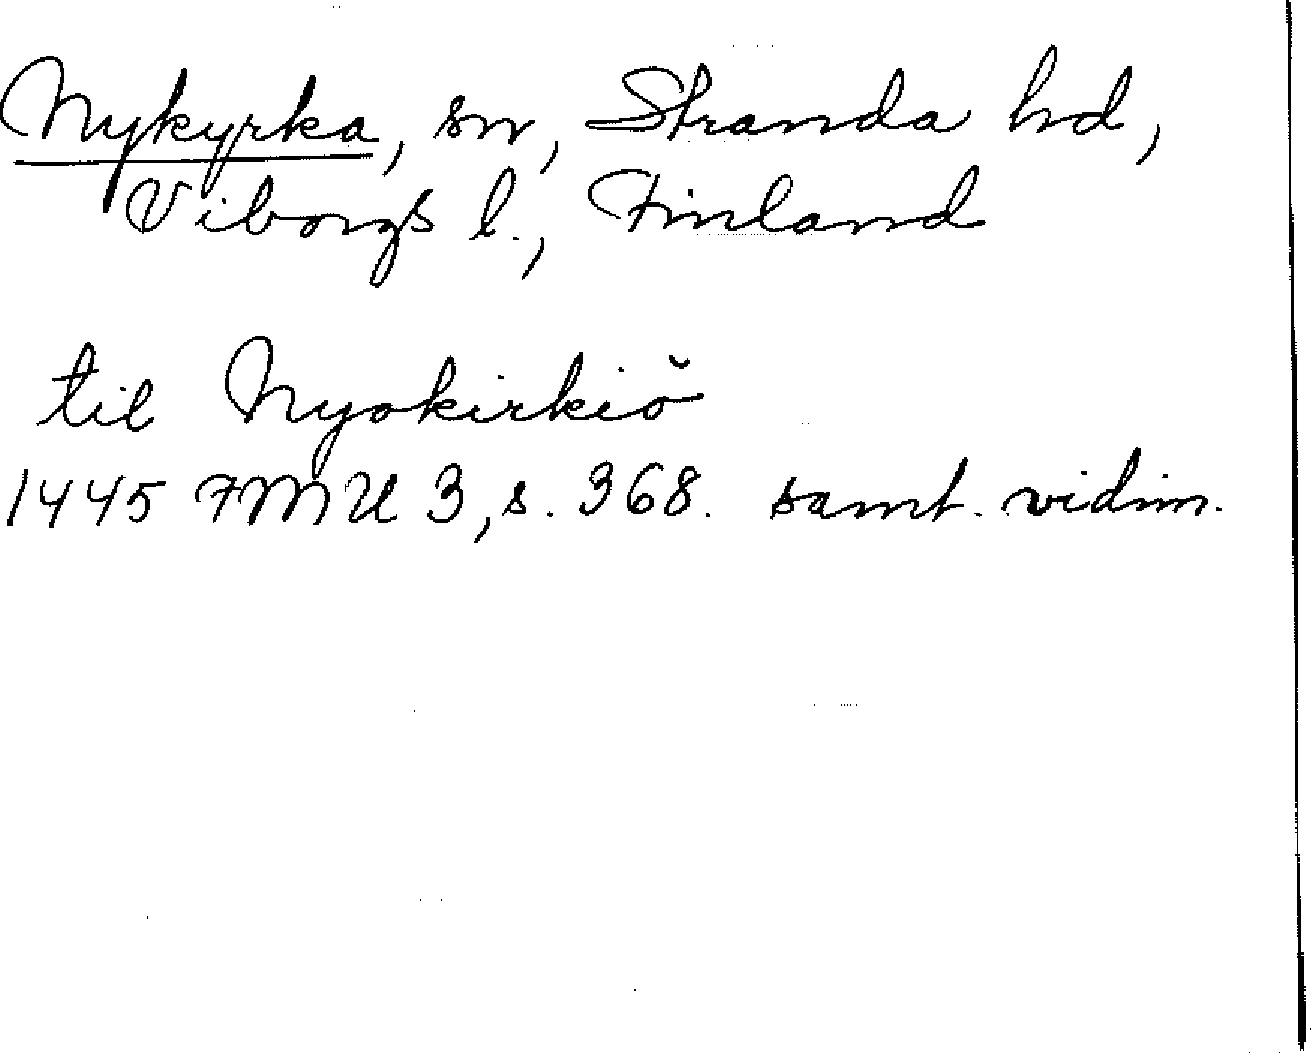 Nykyrka, sn, Stranda hd,
Viborgs l., Finland
til Nyokirkiŏ
1445 FMU 3, s. 368. samt. vidim.